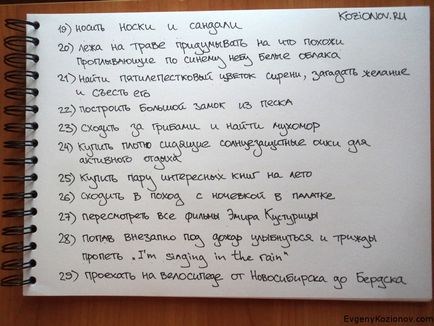 KOZIONOV.RU
19) носить носки и сандали
20) лежа на траве придумывать на что похожи
проплывающие по синему небу белые облака
21) найти пятилепестковый цветок сирени, загадать желание
и съесть его
22) построить большой замок из песка
23) сходить за грибами и найти мухомор
24) купить плотно сидящие солнцезащитные очки для
активного отдыха
25) купить пару интересных книг на лето
26) сходить в поход с ночевкой в палатке
27) пересмотреть все фильмы Эмира Кустурицы
28) попав внезапно под дождь улыбнуться и трижды
пропеть „I'm singing in the rain"
29) проехать на велосипеде от Новосибирска до Бердска
EvgenyKozionov.com